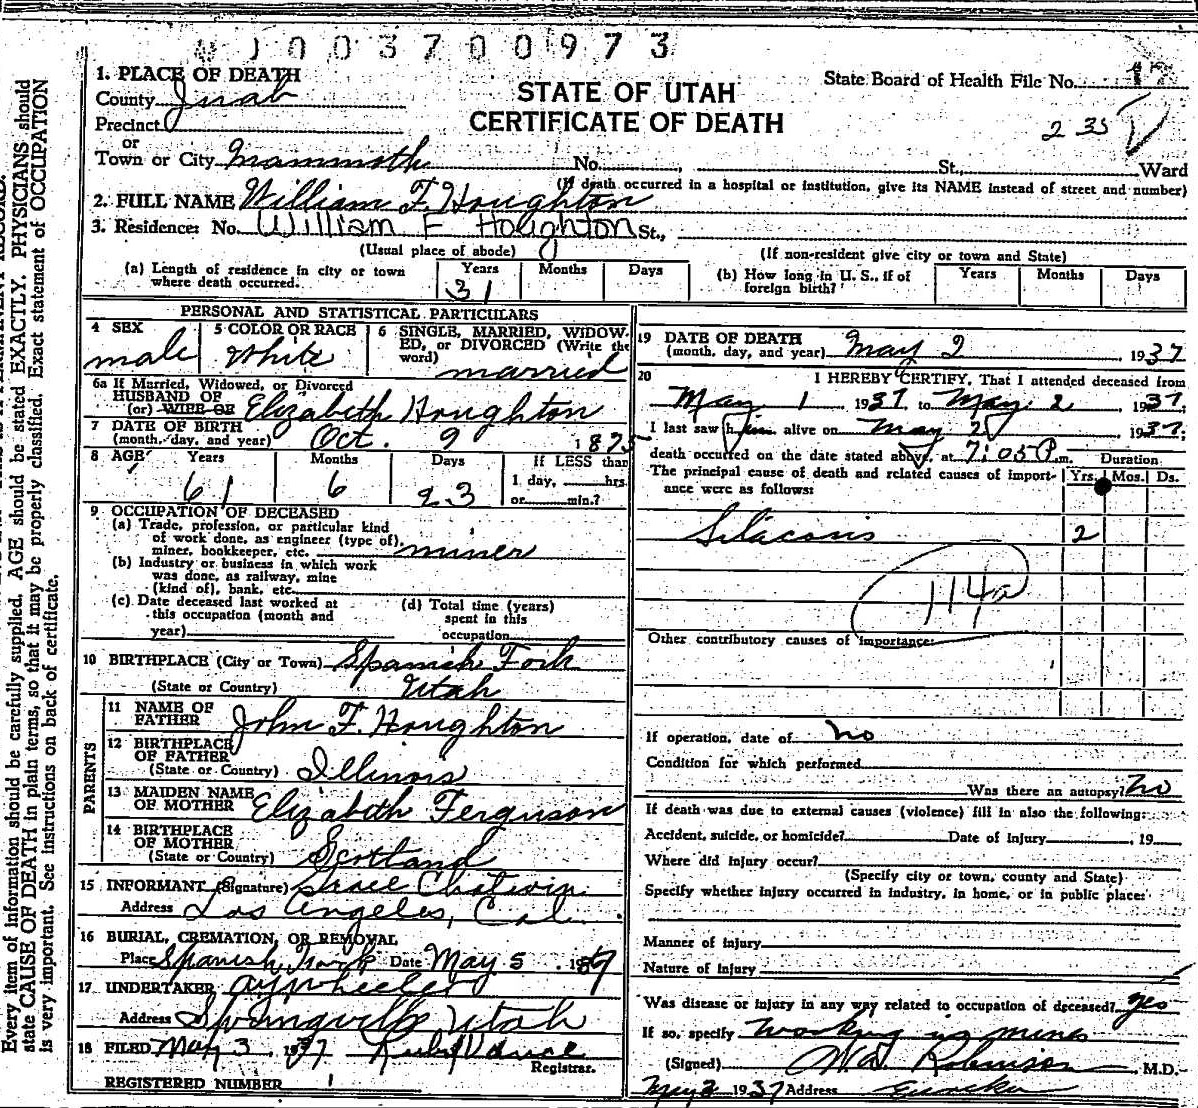 1003700973
1. PLACE OF DEATH
County Juab
Precinct
or
Town or City Mammoth No. , St., Ward
STATE OF UTAH
CERTIFICATE OF DEATH
State Board of Health File No.
235
(If death occurred in a hospital or institution, give its NAME instead of street and number)
2. FULL NAME William F. Houghton
3. Residence: No. William F Houghton St.,
(Usual place of abode) (If non-resident give city or town and State)
(a) Length of residence in city or town where death occurred. Years 31 Months Days
(b) How long in U. S., if of foreign birth? Years Months Days
PERSONAL AND STATISTICAL PARTICULARS
4 SEX male
5 COLOR OR RACE White
6 SINGLE, MARRIED, WIDOWED, or DIVORCED (Write the word) married
6a If Married, Widowed, or Divorced
HUSBAND OF
(or) WIFE OF Elizabeth Houghton
7 DATE OF BIRTH
(month, day, and year) Oct. 9 1875
8 AGE Years 61 Months 6 Days 23
If LESS than
1 day, hrs.
or min.?
9 OCCUPATION OF DECEASED
(a) Trade, profession, or particular kind
of work done, as engineer (type of),
miner, bookkeeper, etc. miner
(b) Industry or business in which work
was done, as railway, mine
(kind of), bank, etc.
(c) Date deceased last worked at
this occupation (month and
year)
(d) Total time (years)
spent in this
occupation
10 BIRTHPLACE (City or Town) Spanish Fork
(State or Country) Utah
PARENTS
11 NAME OF
FATHER John F. Houghton
12 BIRTHPLACE
OF FATHER
(State or Country) Illinois
13 MAIDEN NAME
OF MOTHER Elizabeth Ferguson
14 BIRTHPLACE
OF MOTHER
(State or Country) Scotland
15 INFORMANT (Signature) Chatwin
Address Los Angeles, Cal.
16 BURIAL, CREMATION, OR REMOVAL
Place Spanish Fork Date May 5 , 1937
17 UNDERTAKER A Y Wheeler
Address Springville Utah
18 FILED May 3 , 1937 Ruby Vance
Registrar.
REGISTERED NUMBER 1
19 DATE OF DEATH
(month, day, and year) May 2 1937
20 I HEREBY CERTIFY, That I attended deceased from
May 1 1937, to May 2 1937.
I last saw him alive on May 2 1937;
death occurred on the date stated above, at 7:05 P m. Duration
The principal cause of death and related causes of importance were as follows: Yrs. Mos. Ds.
Silacosis 2
114a
Other contributory causes of importance:
If operation, date of no
Condition for which performed
Was there an autopsy? no
If death was due to external causes (violence) fill in also the following:
Accident, suicide, or homicide? Date of Injury , 19
Where did injury occur?
(Specify city or town, county and State)
Specify whether injury occurred in industry, in home, or in public place:
Manner of injury
Nature of injury
Was disease or injury in any way related to occupation of deceased? yes
If so, specify Working in mines
(Signed) Robinson , M.D.
May 3 1937 Address Eureka
Every item of information should be carefully supplied. AGE should be stated EXACTLY. PHYSICIANS should
state CAUSE OF DEATH in plain terms, so that it may be properly classified. Exact statement of OCCUPATION
is very important. See instructions on back of certificate.